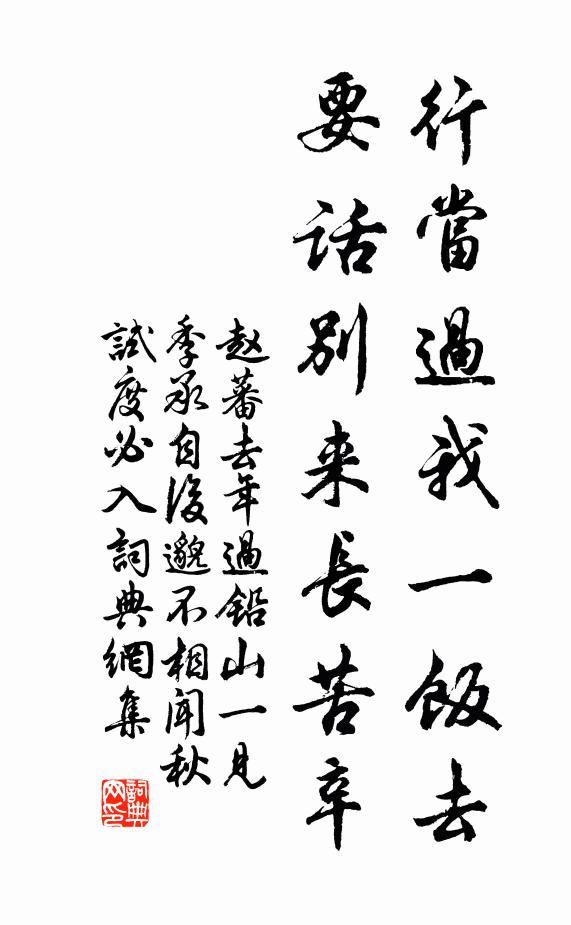 行當過我一飯去
要话別来長苦辛
赵蕃去年過鉛山一見
季承自後邈不相闻秋
試度必入詞典網集
詞典
网印